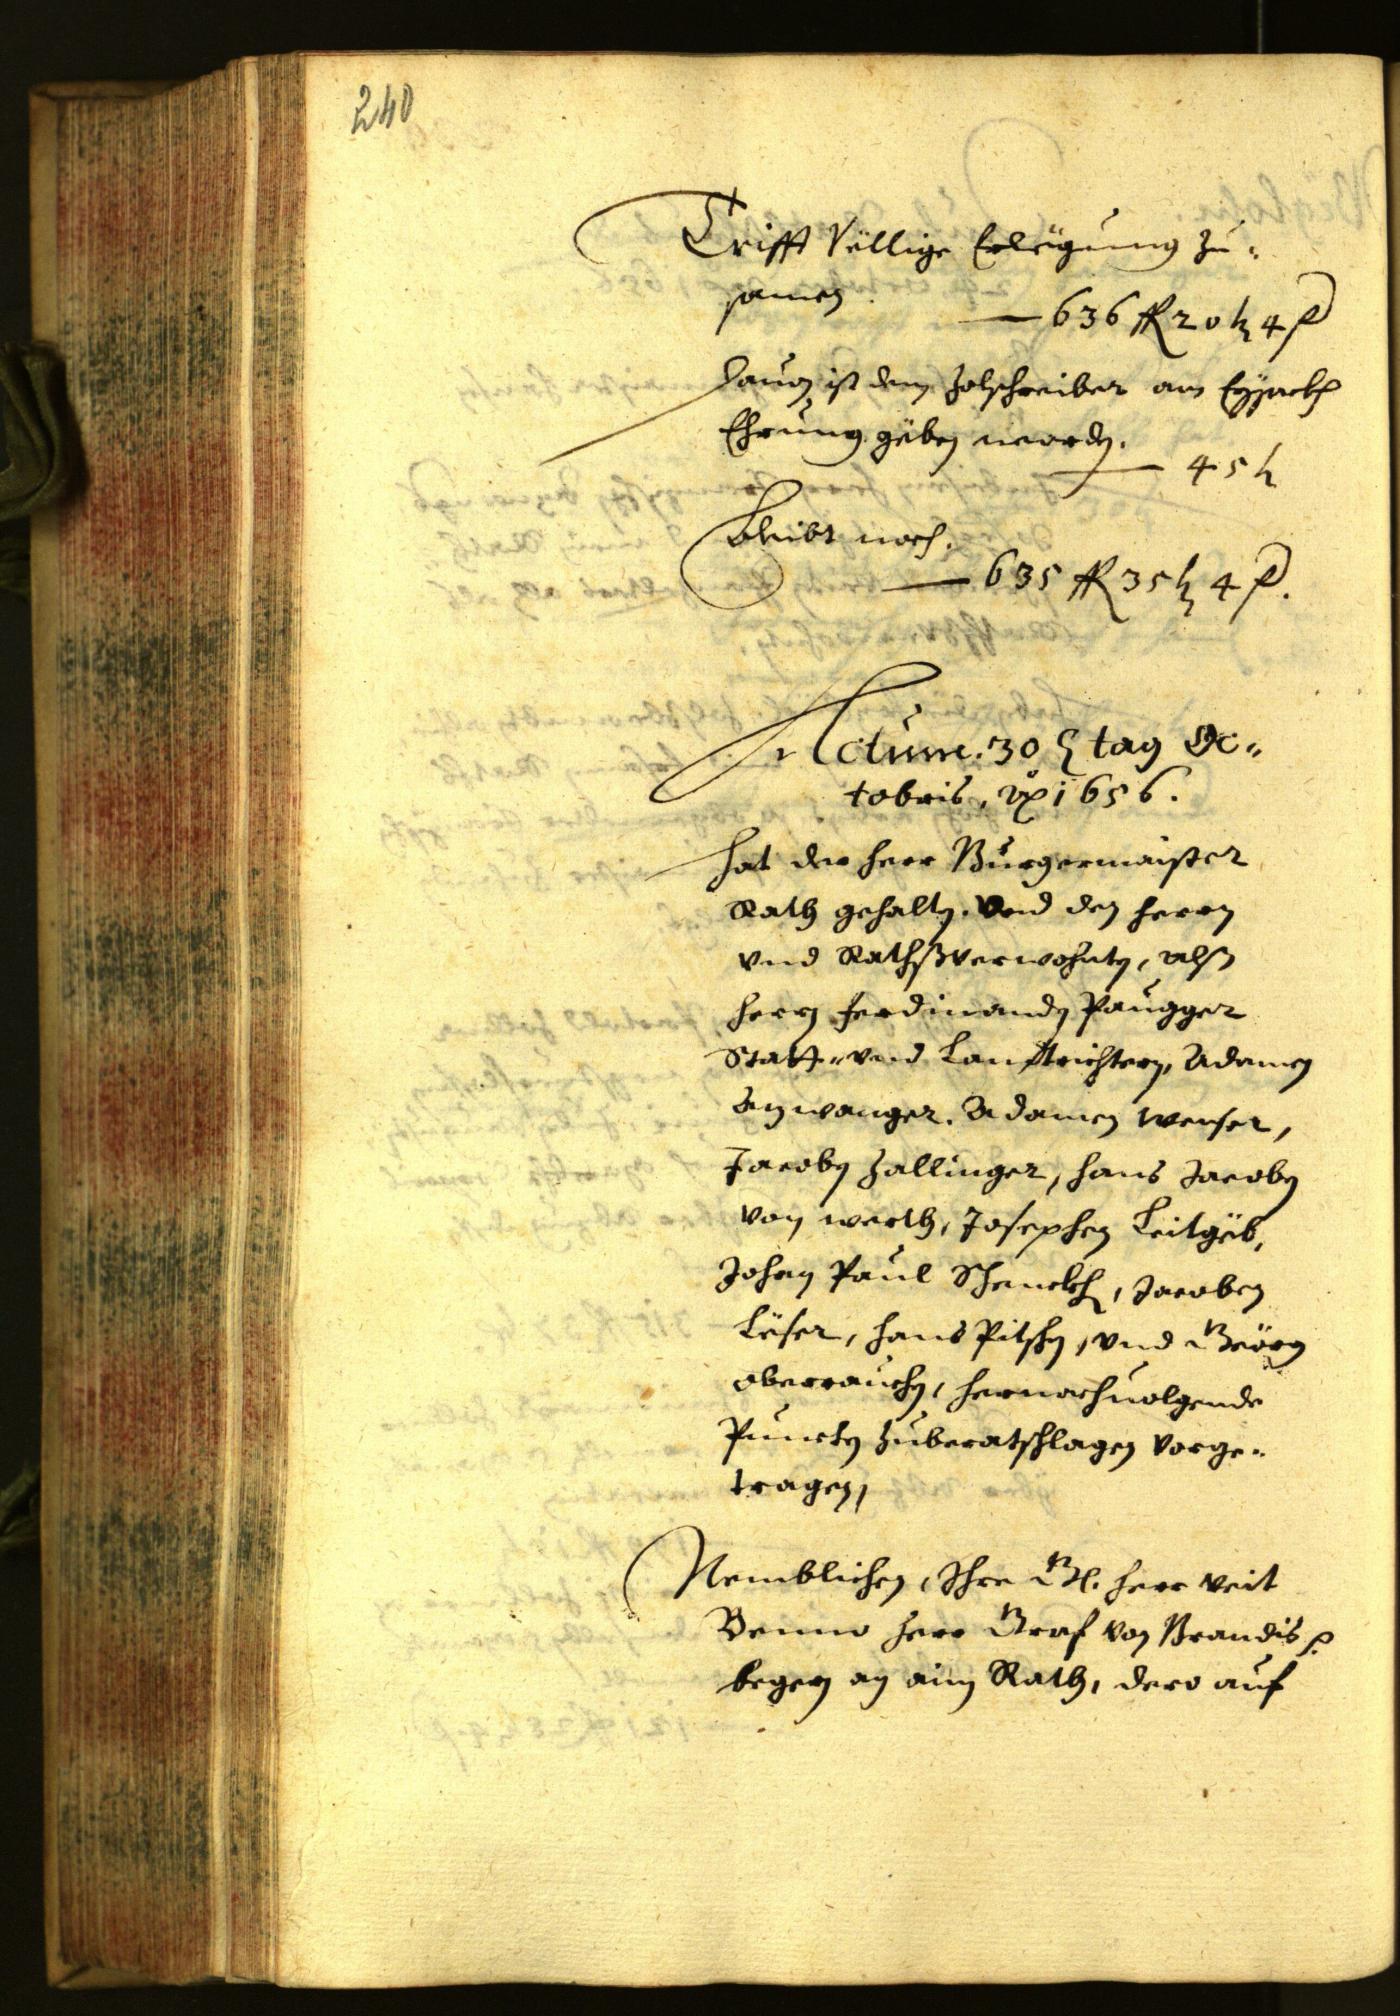 240
Trifft völlige Erlegung zu-
samen
636 fl 20 k 4 ₰
Dauon ist dem Zolschreiber am Eyjackh
Ehrung geben worden.
45 k
Bleibt noch.
635 fl 35 k 4 ₰.
Actum. 30 tag Oc-
tobris, 1656.
Hat der Herr Burgermaister
Rath gehalten. Vnd den herrn
vnd Rathßverwohnten, alß
herrn Ferdinanden Paugger
Statt- vnd Landtrichtern, Adamen
Anwanger. Adamen Wenser,
Jacoben Zallinger, Hans Jacoben
von werth, Josephen Leitgeb,
Johan Paul Schenckh, Jacoben
Leser, Hans Pitschen, vnd Geörg
Oberrauchen, hernachuolgende
Puncten zuberatschlagen vorge-
tragen,
Nemblichen, Ihre G. herr Veit
Benno herr Graf von Brandis
begern an ain Rath, dero auf